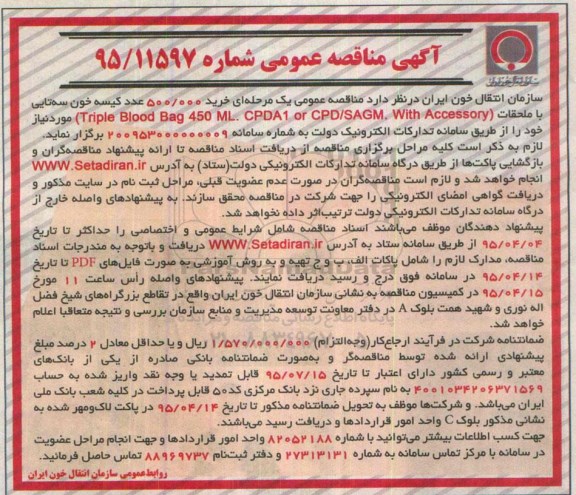 آگهی مناقصه عمومی شماره ۹۵/۱۱۵۹۷
سازمان انتقال خون ایران درنظر دارد مناقصه عمومی یک مرحله‌ای خرید ۵۰۰/۰۰۰ عدد کیسه خون سه‌تایی
با ملحقات (Triple Blood Bag 450 ML. CPDA1 or CPD/SAGM. With Accessory) موردنیاز
خود را از طریق سامانه تدارکات الکترونیک دولت به شماره سامانه ۲۰۰۹۵۳۰۰۰۰۰۰۰۰۰۹ برگزار نماید.
لازم به ذکر است کلیه مراحل برگزاری مناقصه از دریافت اسناد مناقصه تا ارائه پیشنهاد مناقصه‌گران و
بازگشایی پاکت‌ها از طریق درگاه سامانه تدارکات الکترونیکی دولت(ستاد) به آدرس WWW.Setadiran.ir
انجام خواهد شد و لازم است مناقصه‌گران در صورت عدم عضویت قبلی، مراحل ثبت نام در سایت مذکور و
دریافت گواهی امضای الکترونیکی را جهت شرکت در مناقصه محقق سازند. به پیشنهادهای واصله خارج از
درگاه سامانه تدارکات الکترونیکی دولت ترتیب‌اثر داده نخواهد شد.
پیشنهاد دهندگان موظف می‌باشند اسناد مناقصه شامل شرایط عمومی و اختصاصی را حداکثر تا تاریخ
۹۵/۰۴/۰۴ از طریق سامانه ستاد به آدرس WWW.Setadiran.ir دریافت و باتوجه به مندرجات اسناد
مناقصه، مدارک لازم را شامل پاکات الف، ب و ج تهیه و به روش آموزشی به صورت فایل‌های PDF تا تاریخ
۹۵/۰۴/۱۴ در سامانه فوق درج و رسید دریافت نمایند. پیشنهادهای واصله رأس ساعت ۱۱ مورخ
۹۵/۰۴/۱۵ در کمیسیون مناقصه به نشانی سازمان انتقال خون ایران واقع در تقاطع بزرگراه‌های شیخ فضل
اله نوری و شهید همت بلوک A در دفتر معاونت توسعه مدیریت و منابع سازمان بررسی و نتیجه متعاقبا اعلام
خواهد شد.
ضمانتنامه شرکت در فرآیند ارجاع‌کار(وجه‌التزام) ۱/۵۷۰/۰۰۰/۰۰۰ ریال و یا حداقل معادل ۲ درصد مبلغ
پیشنهادی ارائه شده توسط مناقصه‌گر و به‌صورت ضمانتنامه بانکی صادره از یکی از بانک‌های
معتبر و رسمی کشور دارای اعتبار تا تاریخ ۹۵/۰۷/۱۵ قابل تمدید یا وجه نقد واریز شده به حساب
۴۰۰۱۰۳۴۲۰۶۳۷۱۵۶۹ به نام سپرده جاری نزد بانک مرکزی کد۵۰ قابل پرداخت در کلیه شعب بانک ملی
ایران می‌باشد. و شرکت‌ها موظف به تحویل ضمانتنامه مذکور تا تاریخ ۹۵/۰۴/۱۴ در پاکت لاک‌ومهر شده به
نشانی مذکور بلوک C واحد امور قراردادها و دریافت رسید می‌باشند.
جهت کسب اطلاعات بیشتر می‌توانید با شماره ۸۲۰۵۲۱۸۸ واحد امور قراردادها و جهت انجام مراحل عضویت
در سامانه با مرکز تماس سامانه به شماره ۲۷۳۱۳۱۳۱ و دفتر ثبت‌نام ۸۸۹۶۹۷۳۷ تماس حاصل فرمائید.
روابط عمومی سازمان انتقال خون ایران